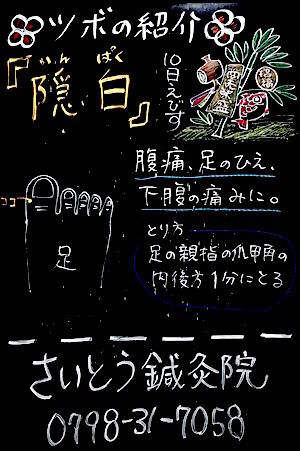 ツボの紹介
いん ぱく
『隠白』
10日えびす
腹痛、足のひえ、
下腹の痛みに。
ココ
足
とり方
足の親指の爪甲角の
内後方1分にとる
さいとう鍼灸院
0798-31-7058